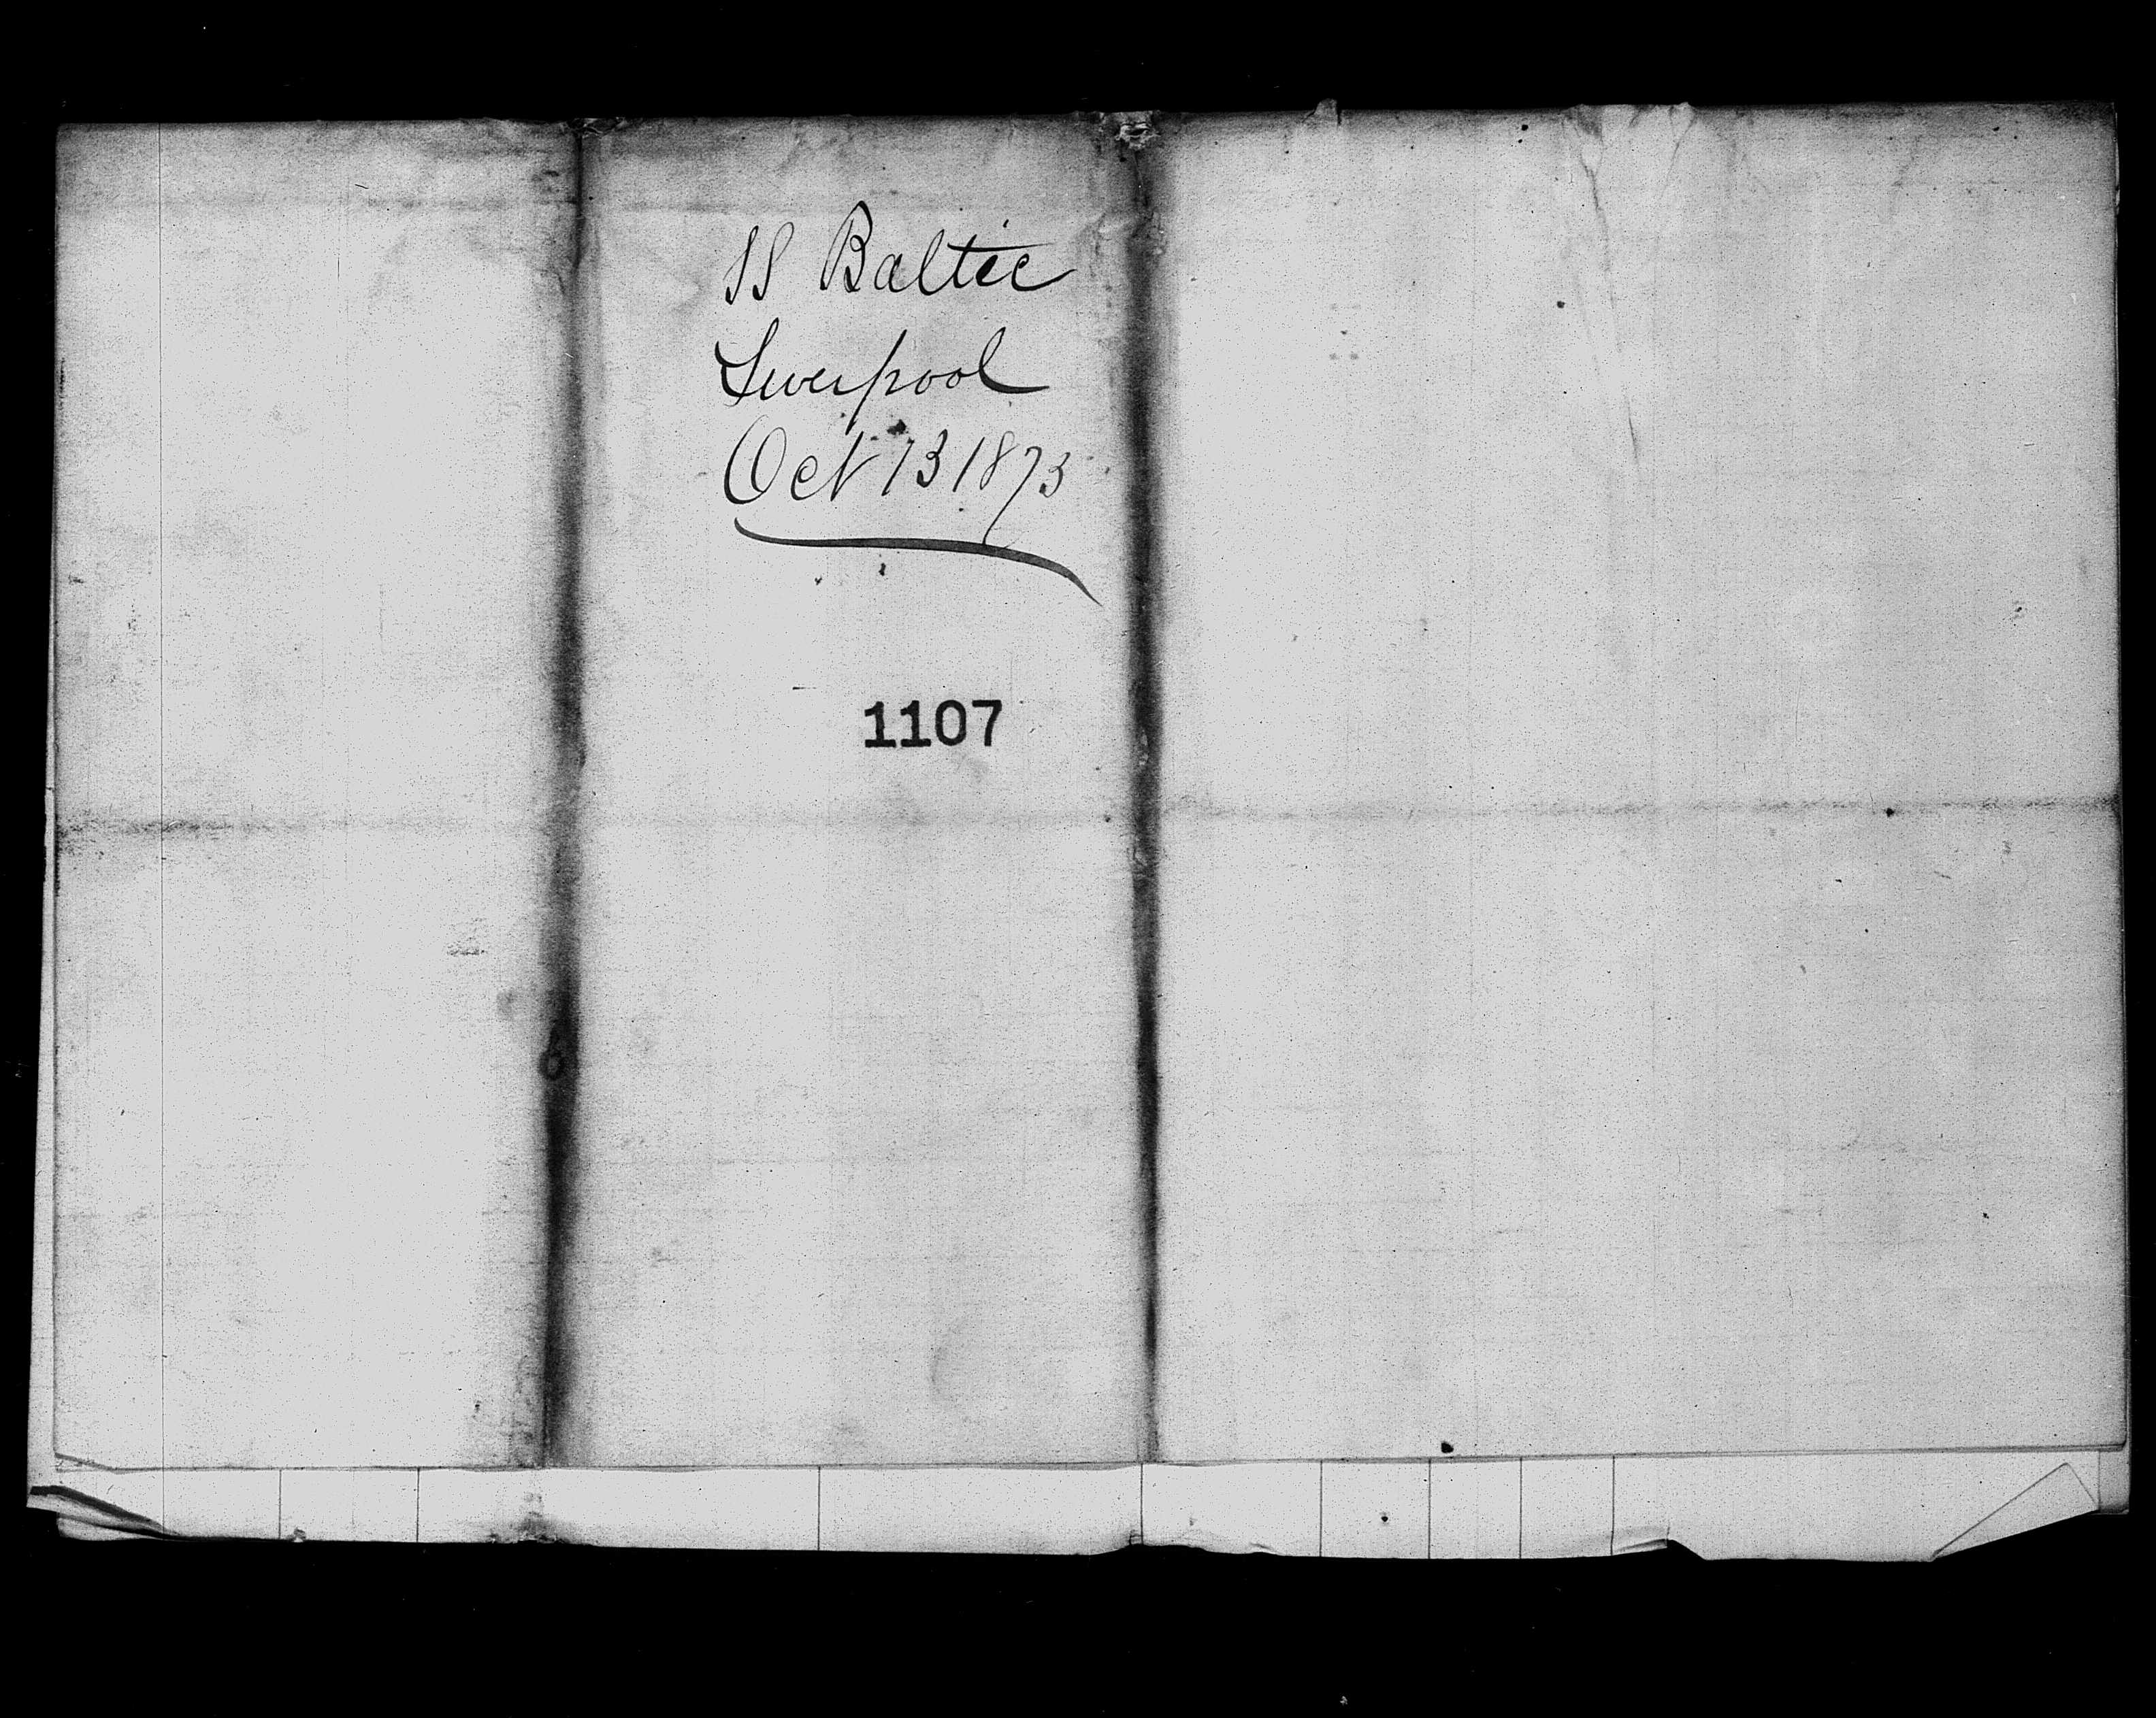 SS Baltic
Liverpool
Oct 13 1873
1107